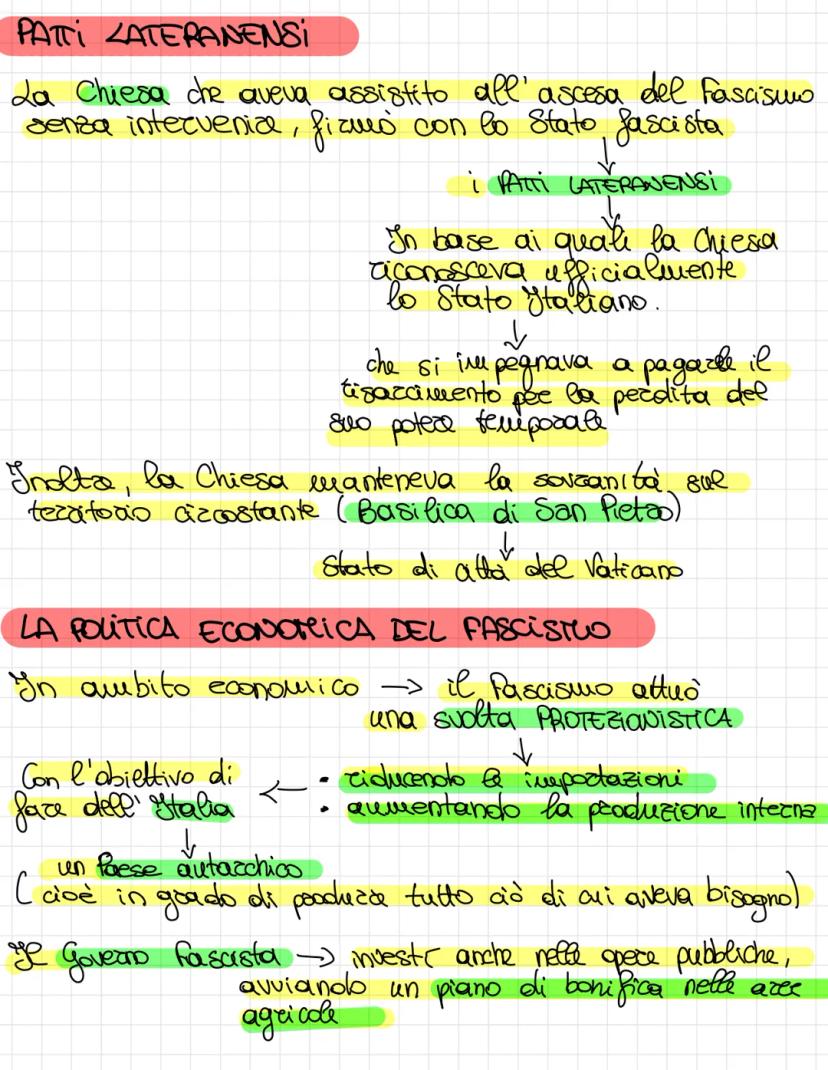 PATTI LATERANENSI
La Chiesa che aveva assistito all'ascesa del Fascismo
senza intervenire, firmò con lo Stato fascista
↓
i PATTI LATERANENSI
↓
In base ai quali la Chiesa
riconosceva ufficialmente
lo Stato Italiano.
↓
che si impegnava a pagarle il
risarcimento per la perdita del
suo potere temporale
Inoltre, la Chiesa manteneva la sovranità sul
territorio circostante (Basilica di San Pietro)
↓
Stato di città del Vaticano
LA POLITICA ECONOMICA DEL FASCISMO
In ambito economico → il Fascismo attuò
una svolta PROTEZIONISTICA
↓
• riducendo le importazioni
• aumentando la produzione interna
←
Con l'obiettivo di
fare dell'Italia
↓
un Paese autarchico
(cioè in grado di produrre tutto ciò di cui aveva bisogno)
Il Governo Fascista → investì anche nelle opere pubbliche,
avviando un piano di bonifica nelle aree
agricole